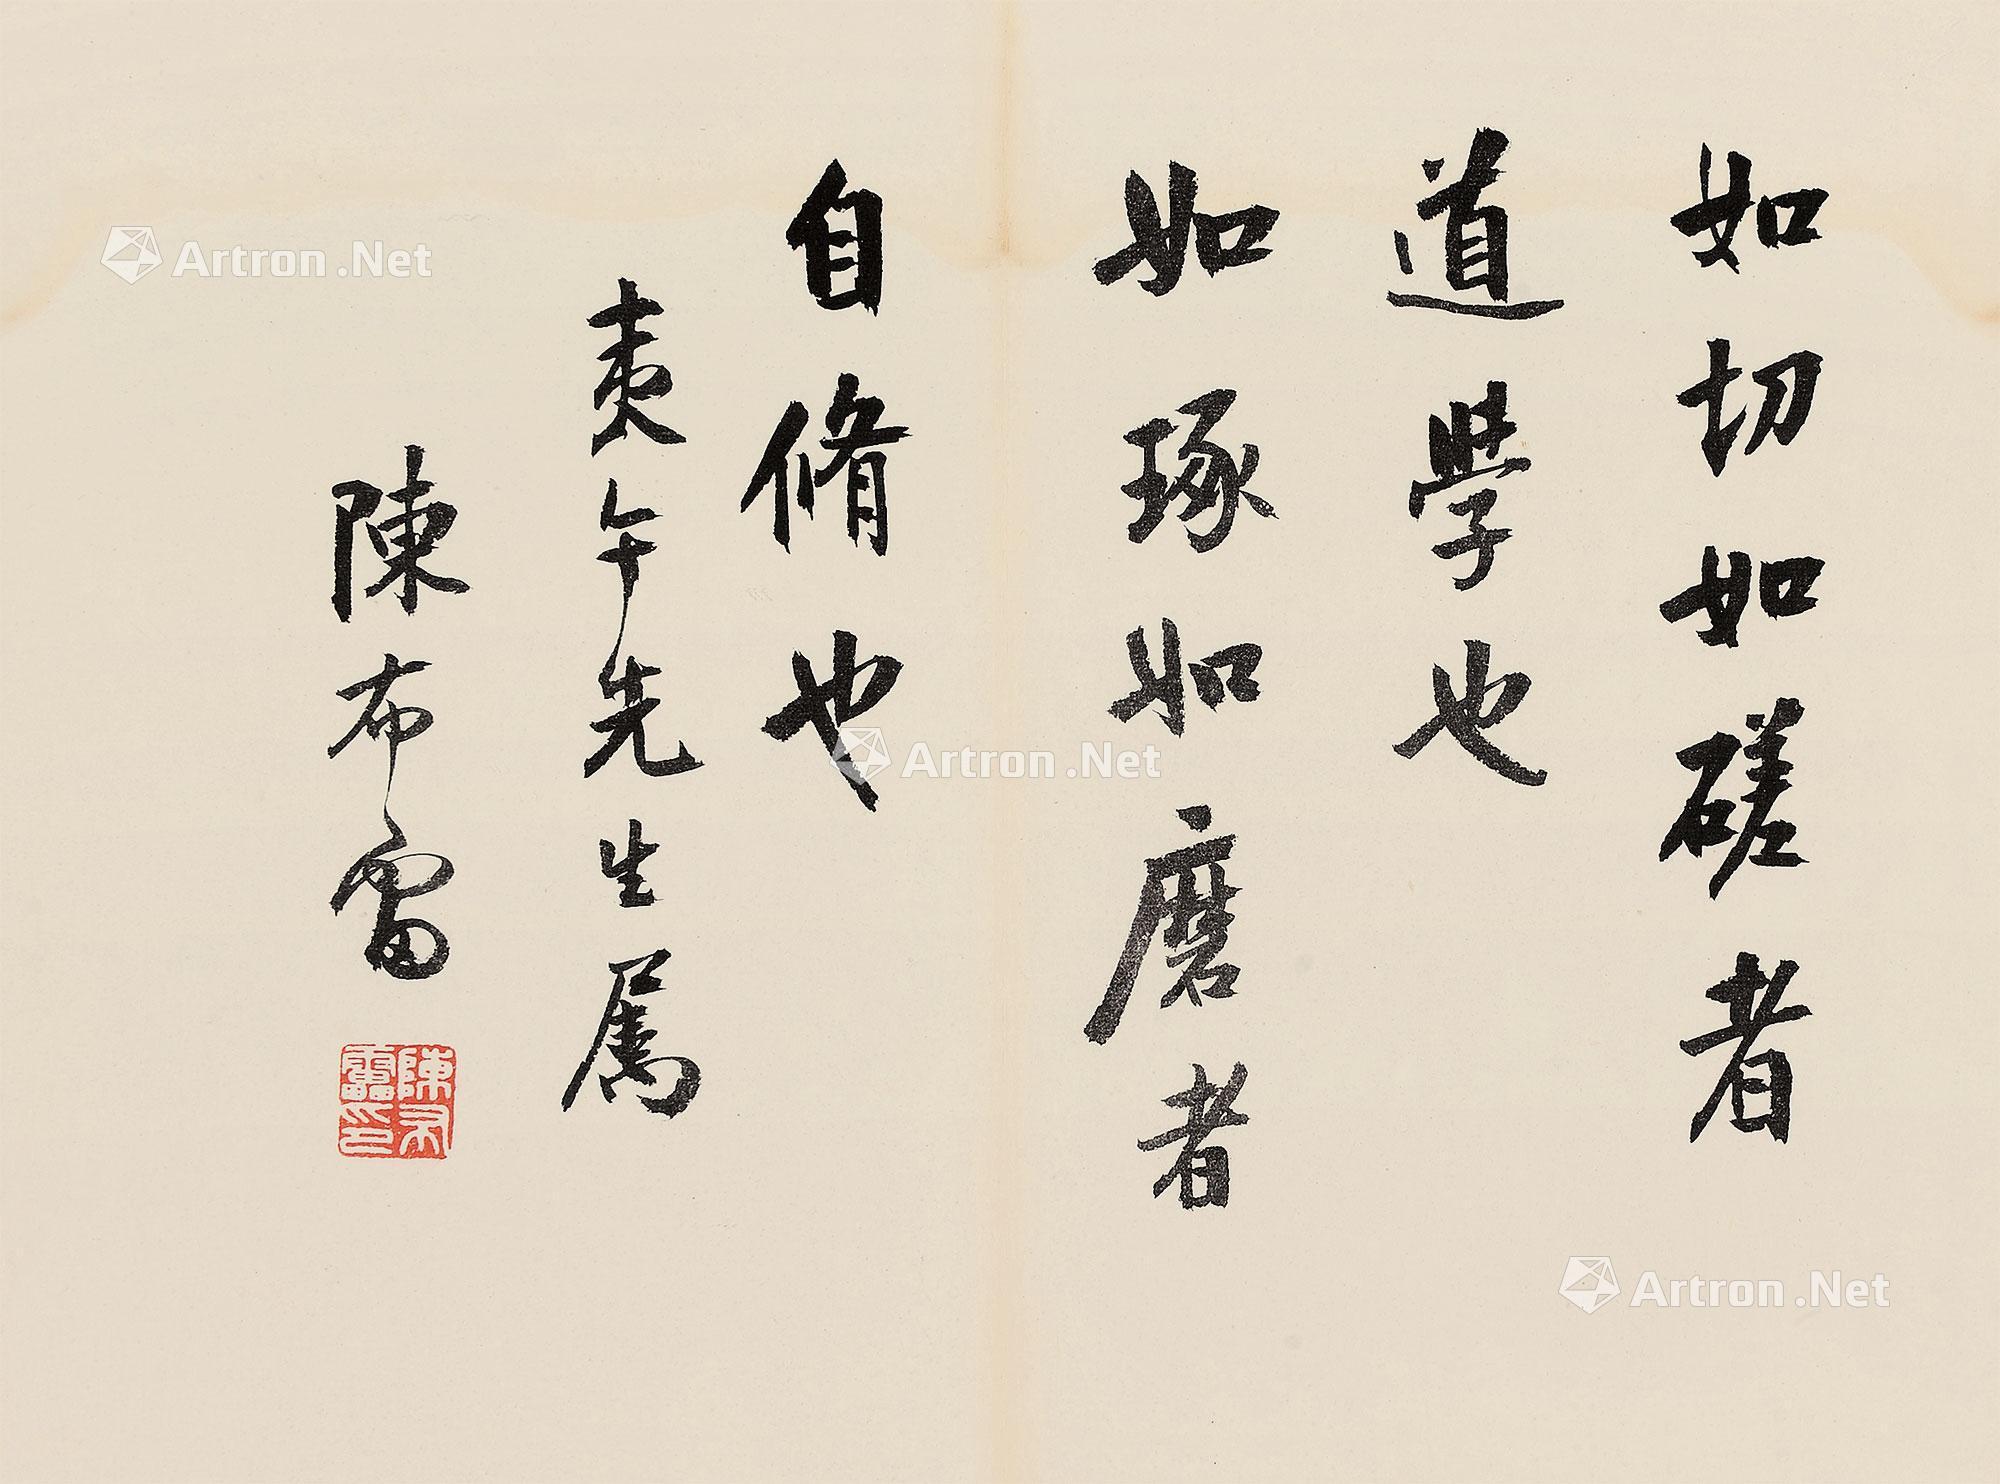 如切如磋者
道學也
如琢如磨者
自脩也
夷午先生屬
陳布雷
陳布雷印
Artron.Net
Artron.Net
Artron.Net